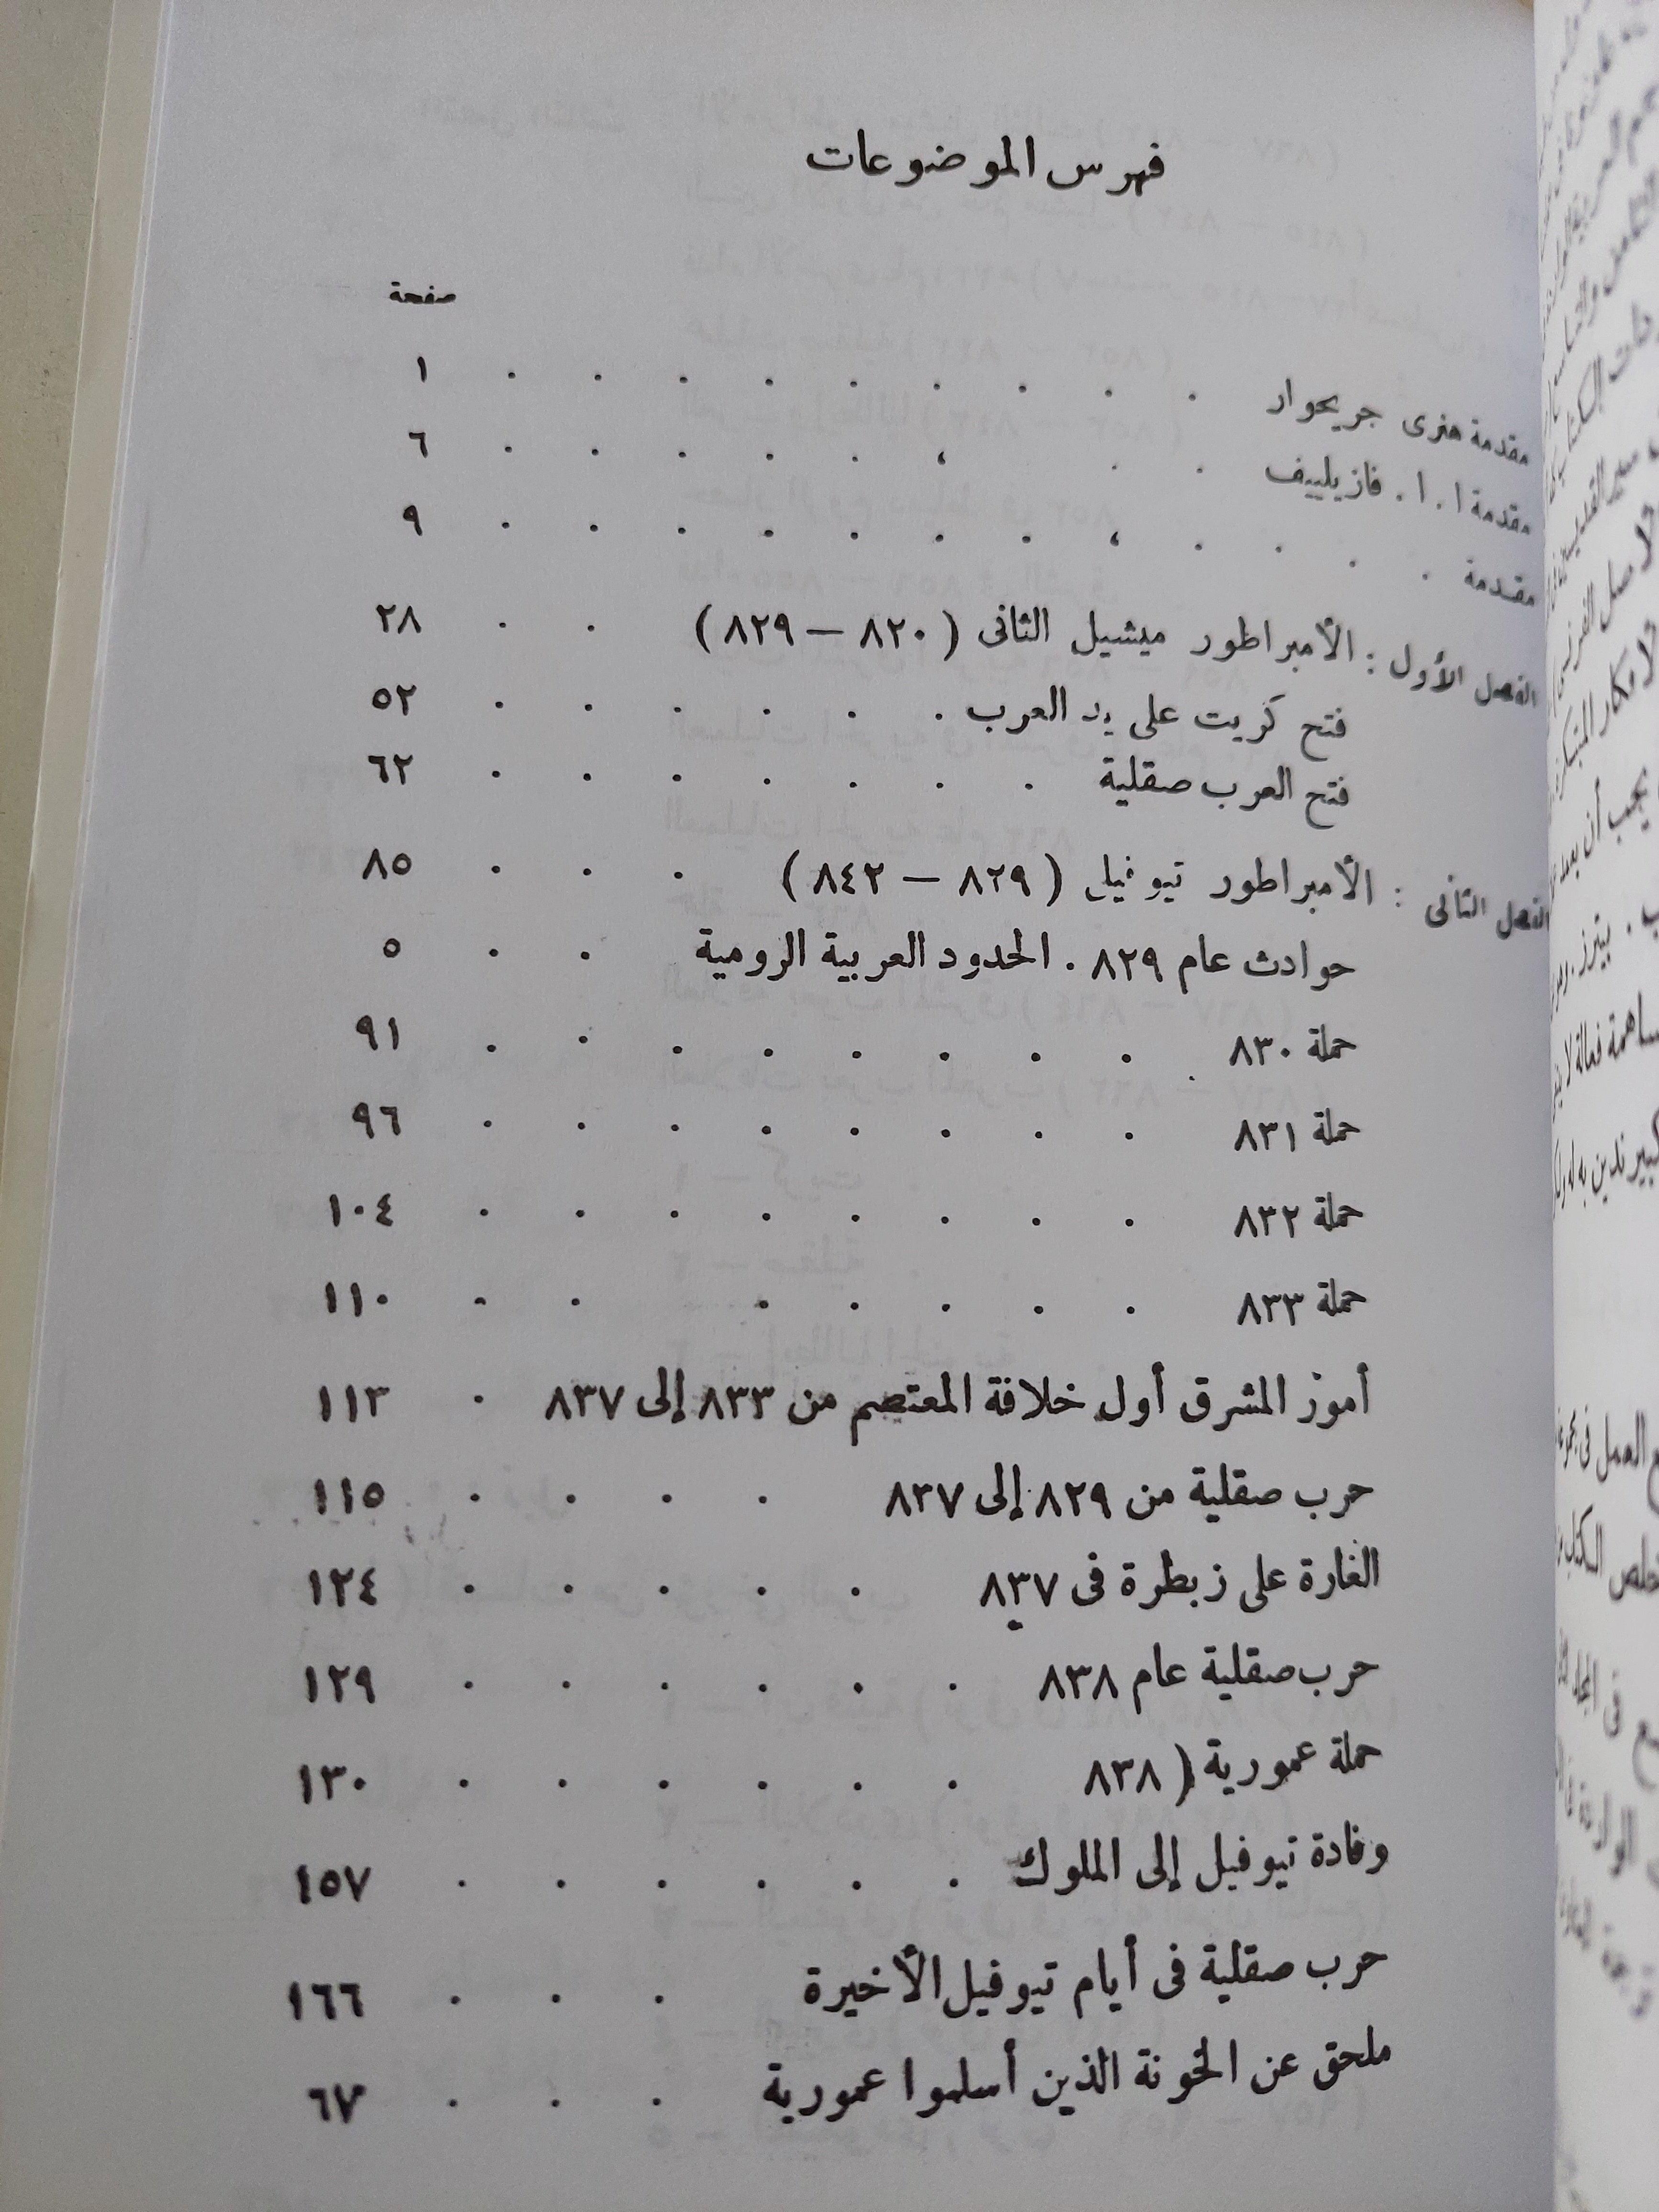 فهرس الموضوعات
صفحة
مقدمة هنرى جريجوار . . . . . . . . . ١
مقدمة ا . ا . فازيلييف . . . . . . . . ٦
مقدمة . . . . . . . . . . . . ٩
الفصل الأول : الأمبراطور ميشيل الثانى ( ٨٢٠ – ٨٢٩ ) . . ٢٨
فتح كريت على يد العرب . . . . . . ٥٢
فتح العرب صقلية . . . . . . . ٦٢
الفصل الثانى : الأمبراطور تيوفيل ( ٨٢٩ – ٨٤٢ ) . . . ٨٥
حوادث عام ٨٢٩ . الحدود العربية الرومية . . ٥
حملة ٨٣٠ . . . . . . . . ٩١
حملة ٨٣١ . . . . . . . . ٩٦
حملة ٨٣٢ . . . . . . . . ١٠٤
حملة ٨٣٣ . . . . . . . ١١٠
أموز المشرق أول خلافة المعتصم من ٨٣٣ إلى ٨٣٧ . ١١٣
حرب صقلية من ٨٢٩ إلى ٨٣٧ . . . . ١١٥
الغارة على زبطرة فى ٨٣٧ . . . . . ١٢٤
حرب صقلية عام ٨٣٨ . . . . . . ١٢٩
حملة عمورية ( ٨٣٨ . . . . . . ١٣٠
وفادة تيوفيل إلى الملوك . . . . . . ١٥٧
حرب صقلية فى أيام تيوفيل الأخيرة . . . ١٦٦
ملحق عن الخونة الذين أسلموا عمورية . . . ٦٧